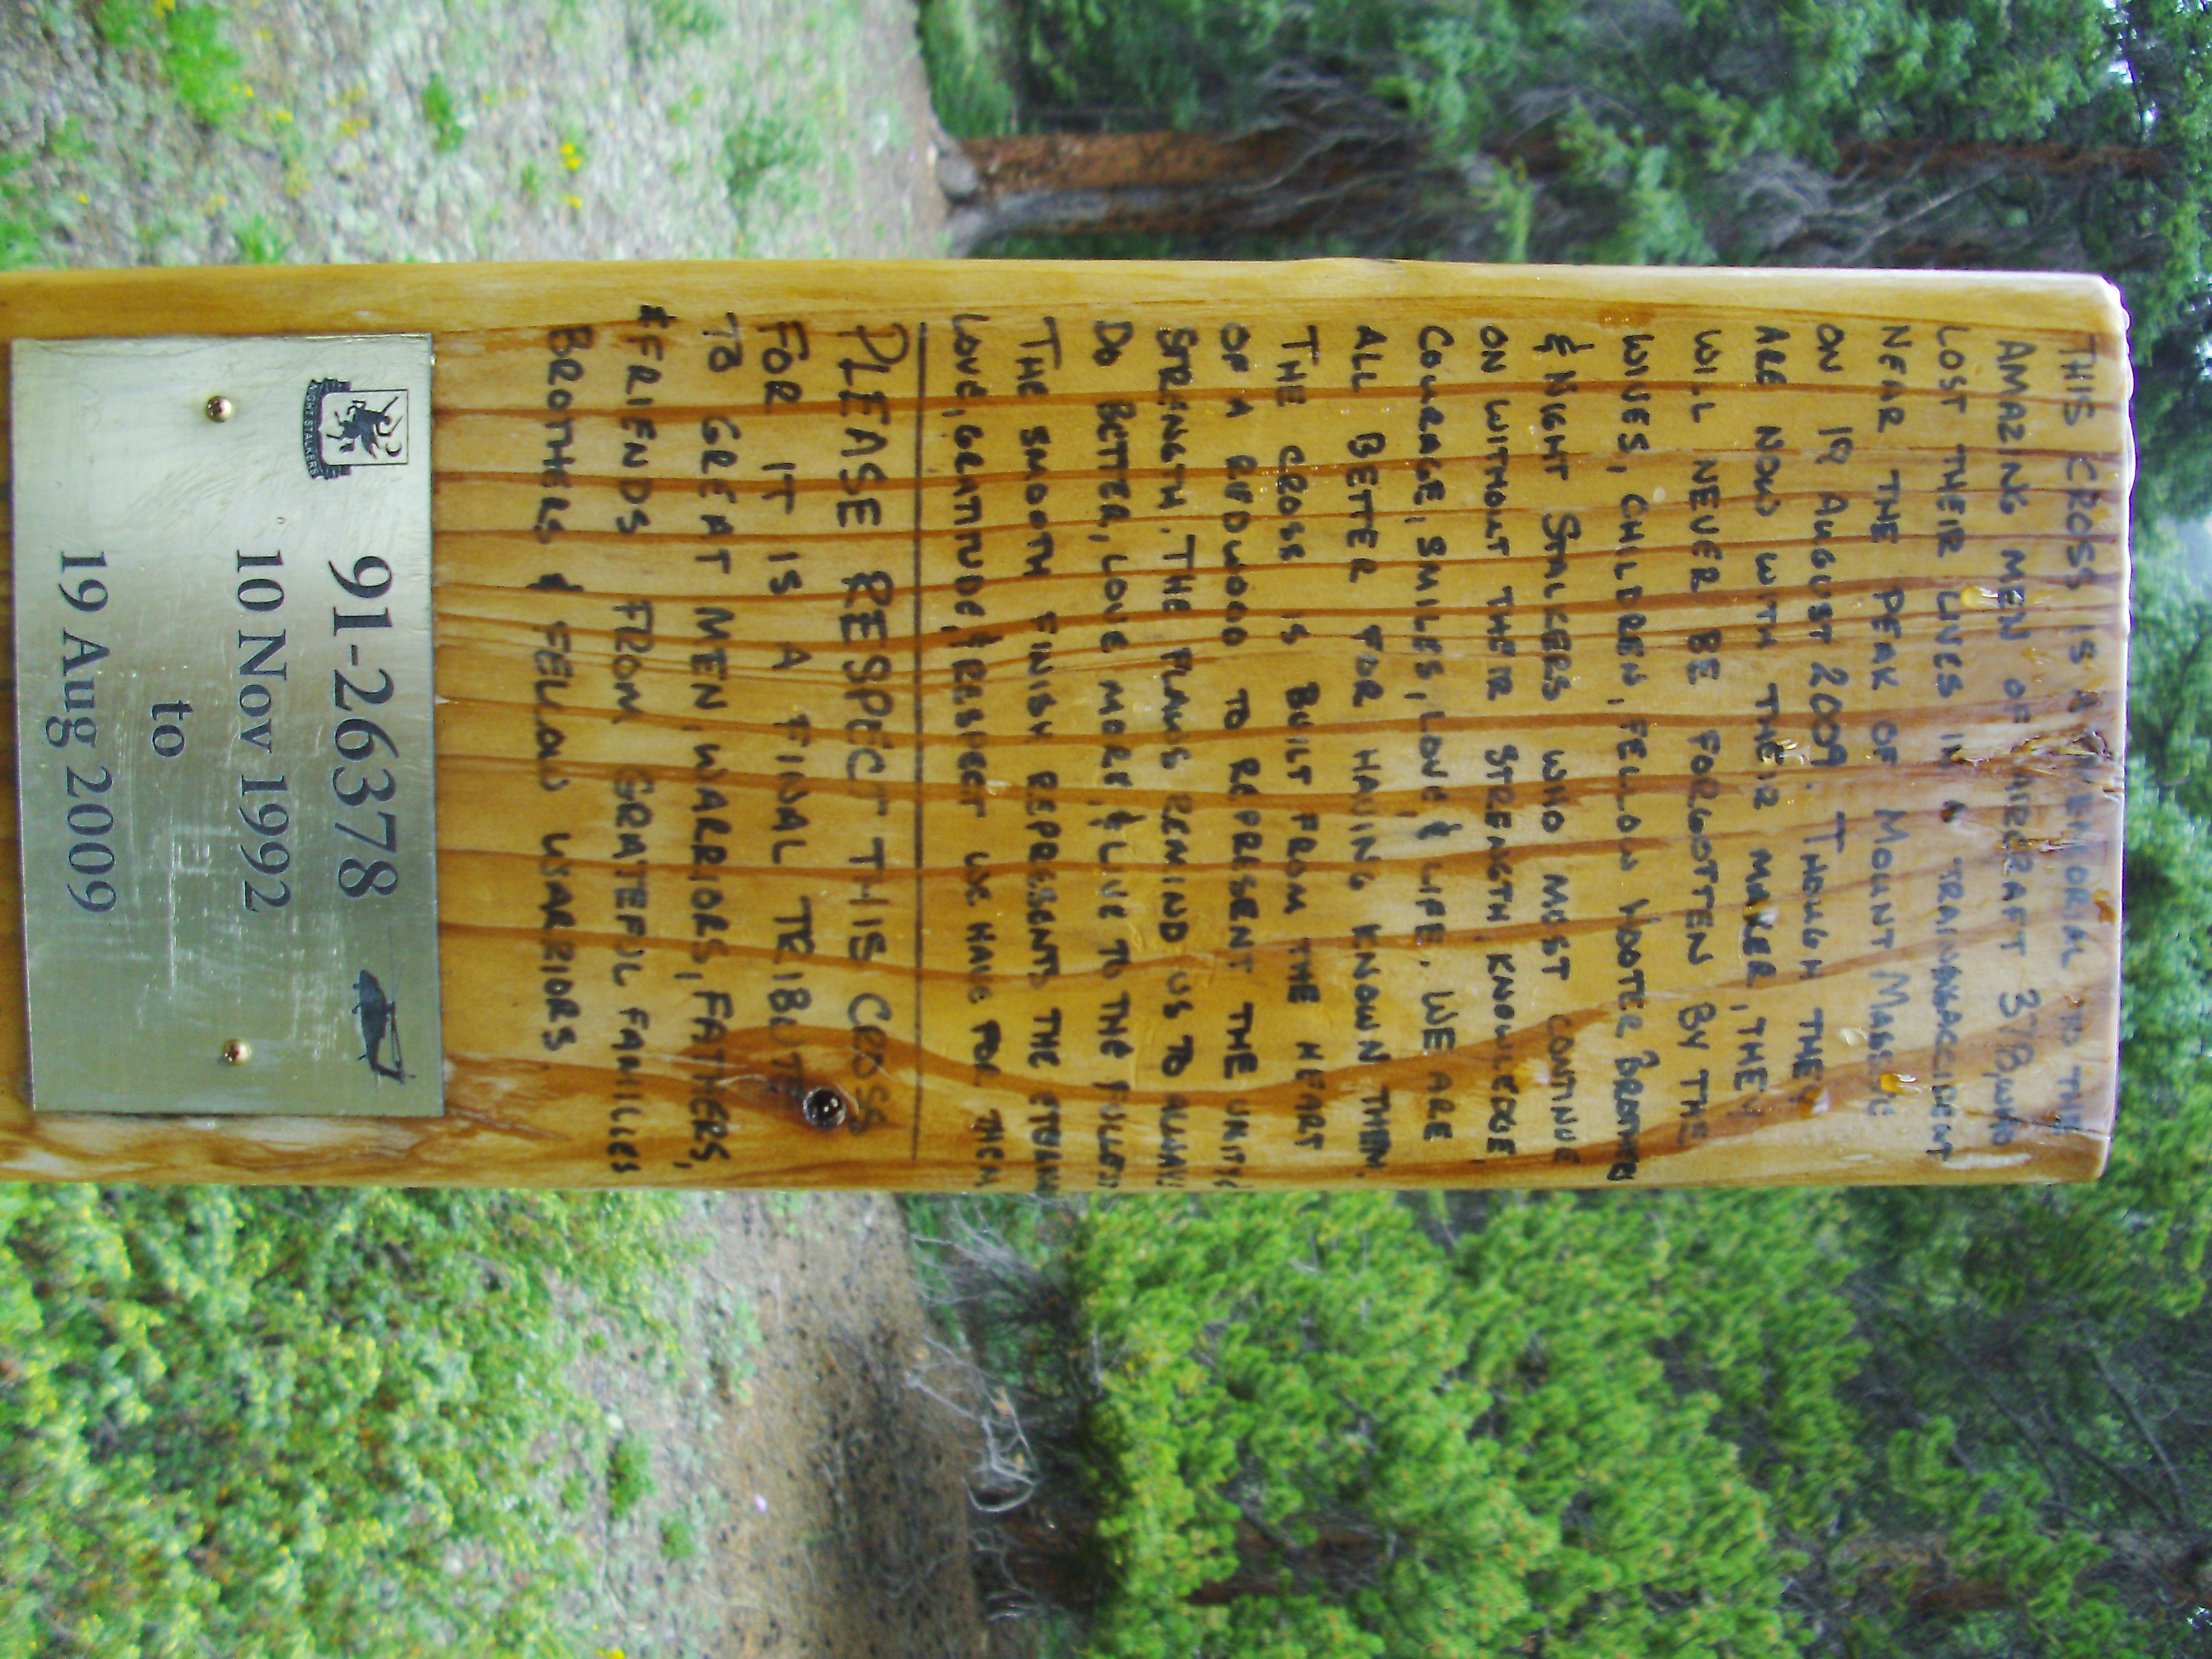 THIS CROSS IS A MEMORIAL TO THE
AMAZING MEN OF AIRCRAFT 378, WHO
LOST THEIR LIVES IN A TRAINING ACCIDENT
NEAR THE PEAK OF MOUNT MASSIVE
ON 19 AUGUST 2009. THOUGH THEY
ARE NOW WITH THEIR MAKER, THEY
WILL NEVER BE FORGOTTEN BY THE
WIVES, CHILDREN, FELLOW HOOTER BROTHERS
& NIGHT STALKERS WHO MUST CONTINUE
ON WITHOUT THEIR STRENGTH, KNOWLEDGE,
COURAGE, SMILES, LOVE & LIFE. WE ARE
ALL BETTER FOR HAVING KNOWN THEM.
THE CROSS IS BUILT FROM THE HEART
OF A REDWOOD TO REPRESENT THE UNITS
STRENGTH. THE FLAWS REMIND US TO ALWAYS
DO BETTER, LOVE MORE, & LIVE TO THE FULLEST
THE SMOOTH FINISH REPRESENTS THE ETERNAL
LOVE, GRATITUDE, & RESPECT WE HAVE FOR THEM
PLEASE RESPECT THIS CROSS
FOR IT IS A FINAL TRIBUTE
TO GREAT MEN, WARRIORS, FATHERS,
& FRIENDS FROM GRATEFUL FAMILIES
BROTHERS & FELLOW WARRIORS
NIGHT STALKERS
91-26378
10 Nov 1992
to
19 Aug 2009